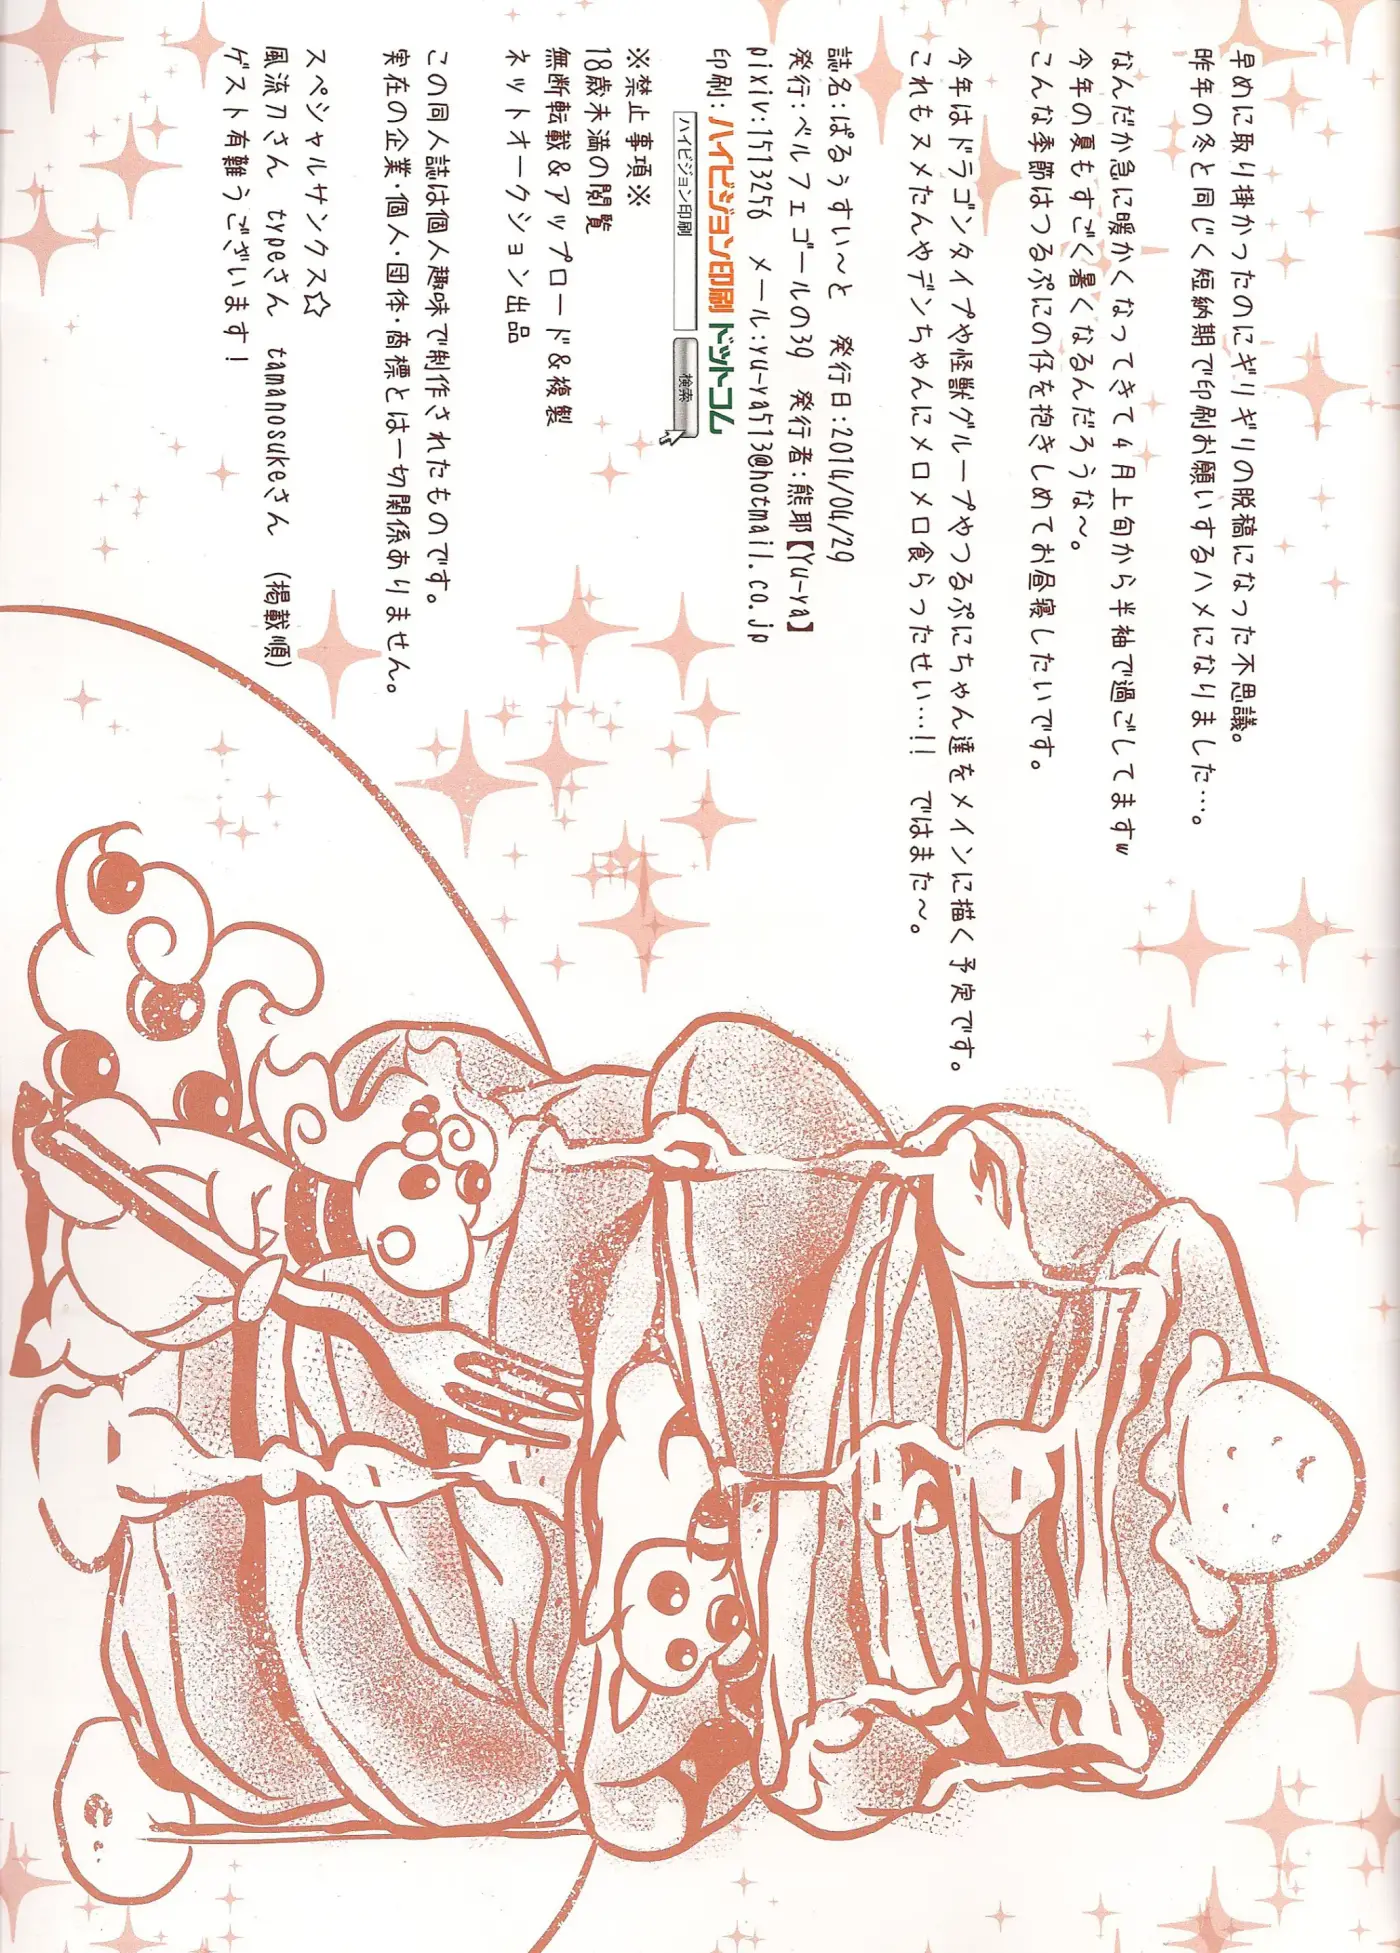 早めに取り掛かったのにギリギリの脱稿になった不思議。
昨年の冬と同じく短納期で印刷お願いするハメになりました…。
なんだか急に暖かくなってきて４月上旬から半袖で過ごしてますw
今年の夏もすごく暑くなるんだろうな～。
こんな季節はつるぷにの仔を抱きしめてお昼寝したいです。
今年はドラゴンタイプや怪獣グループやつるぷにちゃん達をメインに描く予定です。
これもヌメたんやデンちゃんにメロメロ食らったせい…!!　ではまた～。
誌名：ぱるぅすい～と　発行日：2014/04/29
発行：ベルフェゴールの39　発行者：熊耶【Yu-ya】
pixiv:1513256　メール:yu-ya513@hotmail.co.jp
印刷：ハイビジョン印刷ドットコム
ハイビジョン印刷　検索
※禁止事項※
18歳未満の閲覧
無断転載＆アップロード＆複製
ネットオークション出品
この同人誌は個人趣味で制作されたものです。
実在の企業・個人・団体・商標とは一切関係ありません。
スペシャルサンクス☆
風流刀さん　typeさん　tamanosukeさん　(掲載順)
ゲスト有難うございます！